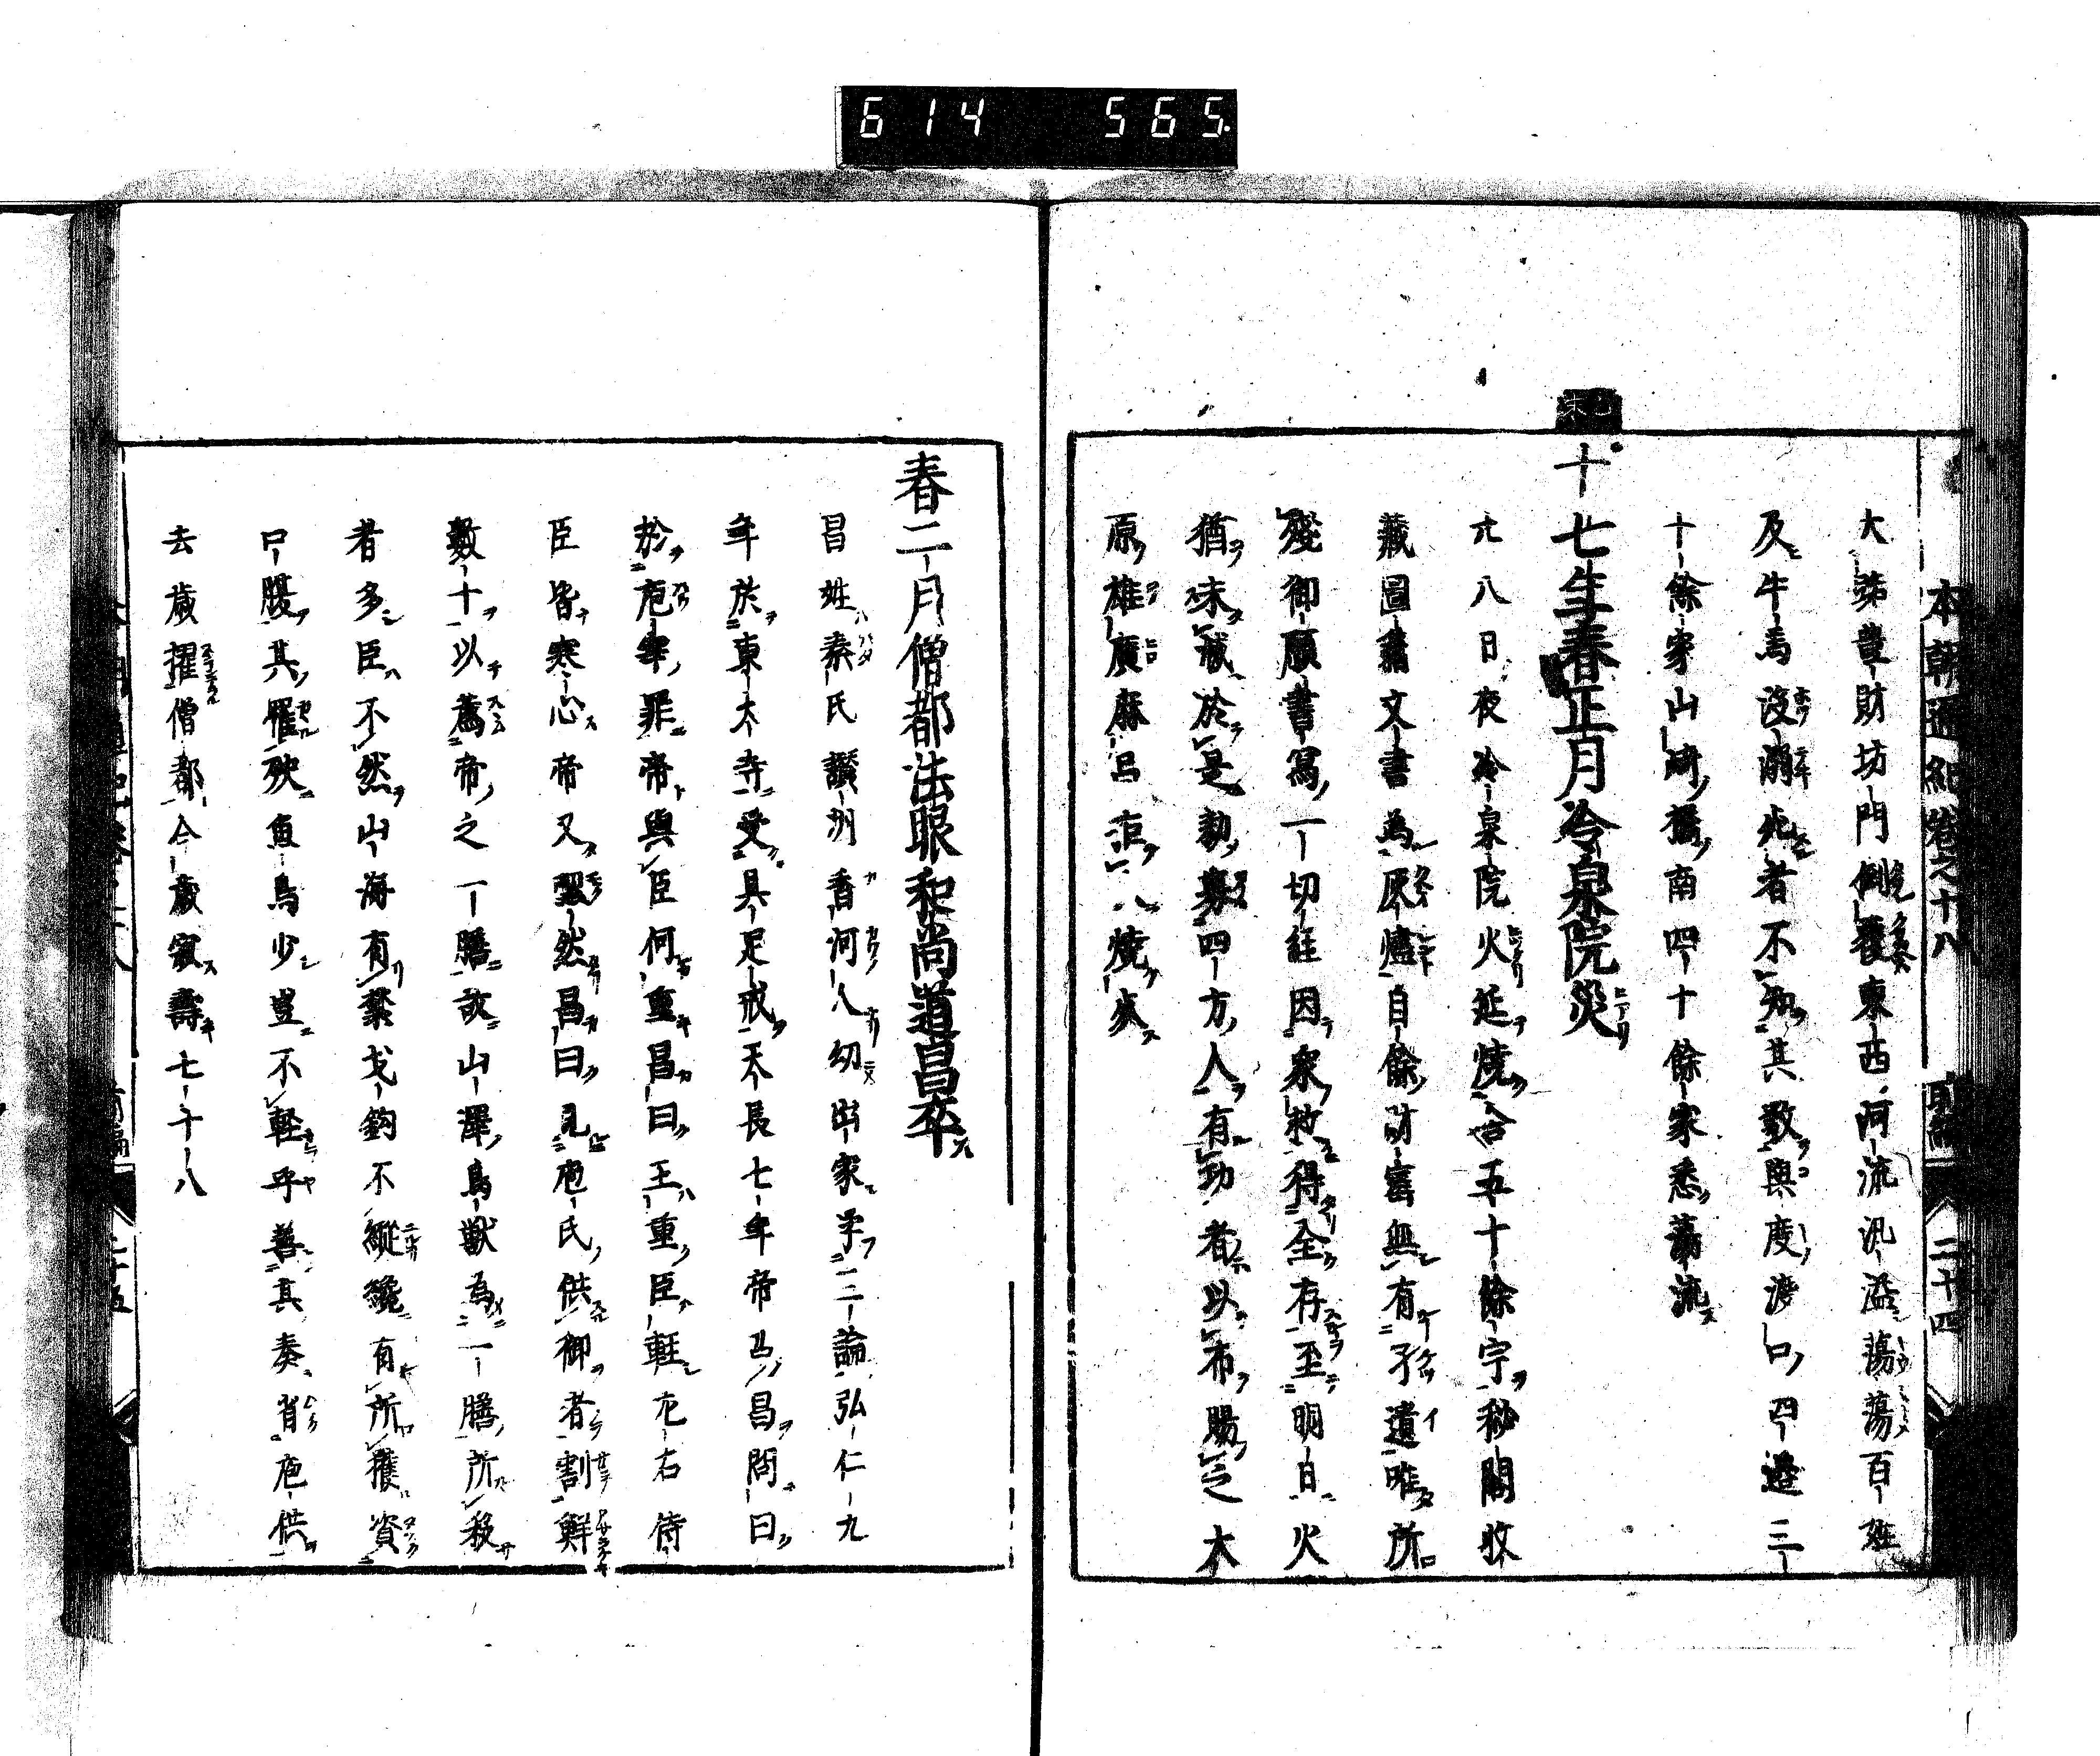 6 14 565.
本朝通紀卷之十八 二十四
大茅章財坊門側覆東西河流汎溢蕩蕩百姓
及牛馬沒溺死者不知其數與度渡口四邊三
十餘家山崎橋南四十餘家悉蕩流
十七年春正月冷泉院災
廿八日夜冷泉院火延燒舍五十餘宇秘閣收
藏圖籍文書為灰燼自餘財寳無有孑遺唯所
殘御願書寫一切經因衆救得全存至明日火
猶未滅於是勅募四方人有功者以布賜之大
原雄廣麻呂 八燒
春二月僧都法眼和尚道昌卒
昌姓秦氏讚州香河人幼出家学三論弘仁九
年於東大寺受具足戒天長七年帝召昌問曰
於庖宰罪帝與臣何重昌曰王重臣輕左右侍
臣皆寒心帝又 然昌曰見庖氏供御者割鮮
數十以薦帝之一膳故山澤鳥獸為一膳所殺
者多臣不然山海有禁戈釣不縱纔有所獲資
口腹其罹殃魚鳥少豈不輕乎善其奏省庖供
去歲擢僧都今歲寂壽七十八